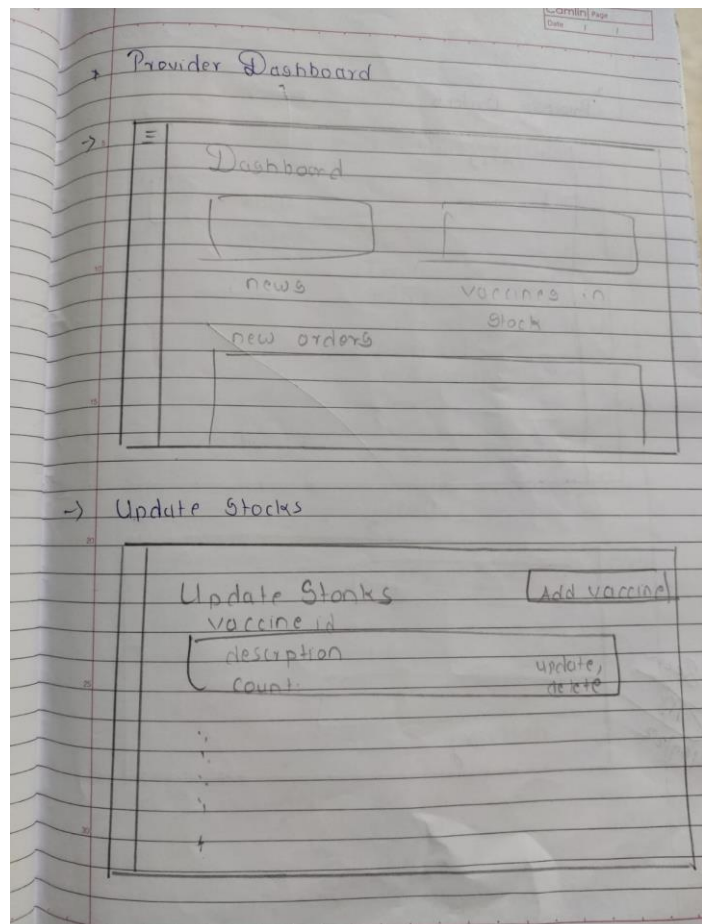 Camlin Page
Date / /
* Provider Dashboard
→
Dashboard
news
vaccines in
stock
new orders
→ Update Stocks
Update Stonks
Add vaccine
vaccine id
descrption
update,
count.
delete
15
20
25
30